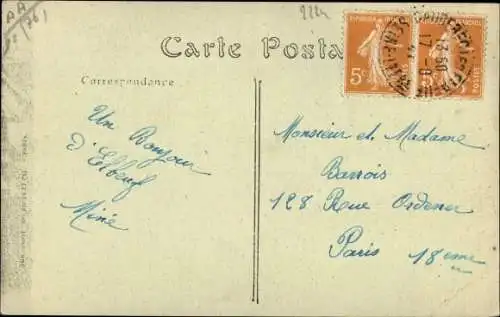 9224
AA
(76)
Carte Posta
Correspondance
5c
POSTES
Un Bonjour
d'Elbeuf
Miné
Monsieur et Madame
Barrois
128 Rue Ordener
Paris 18eme